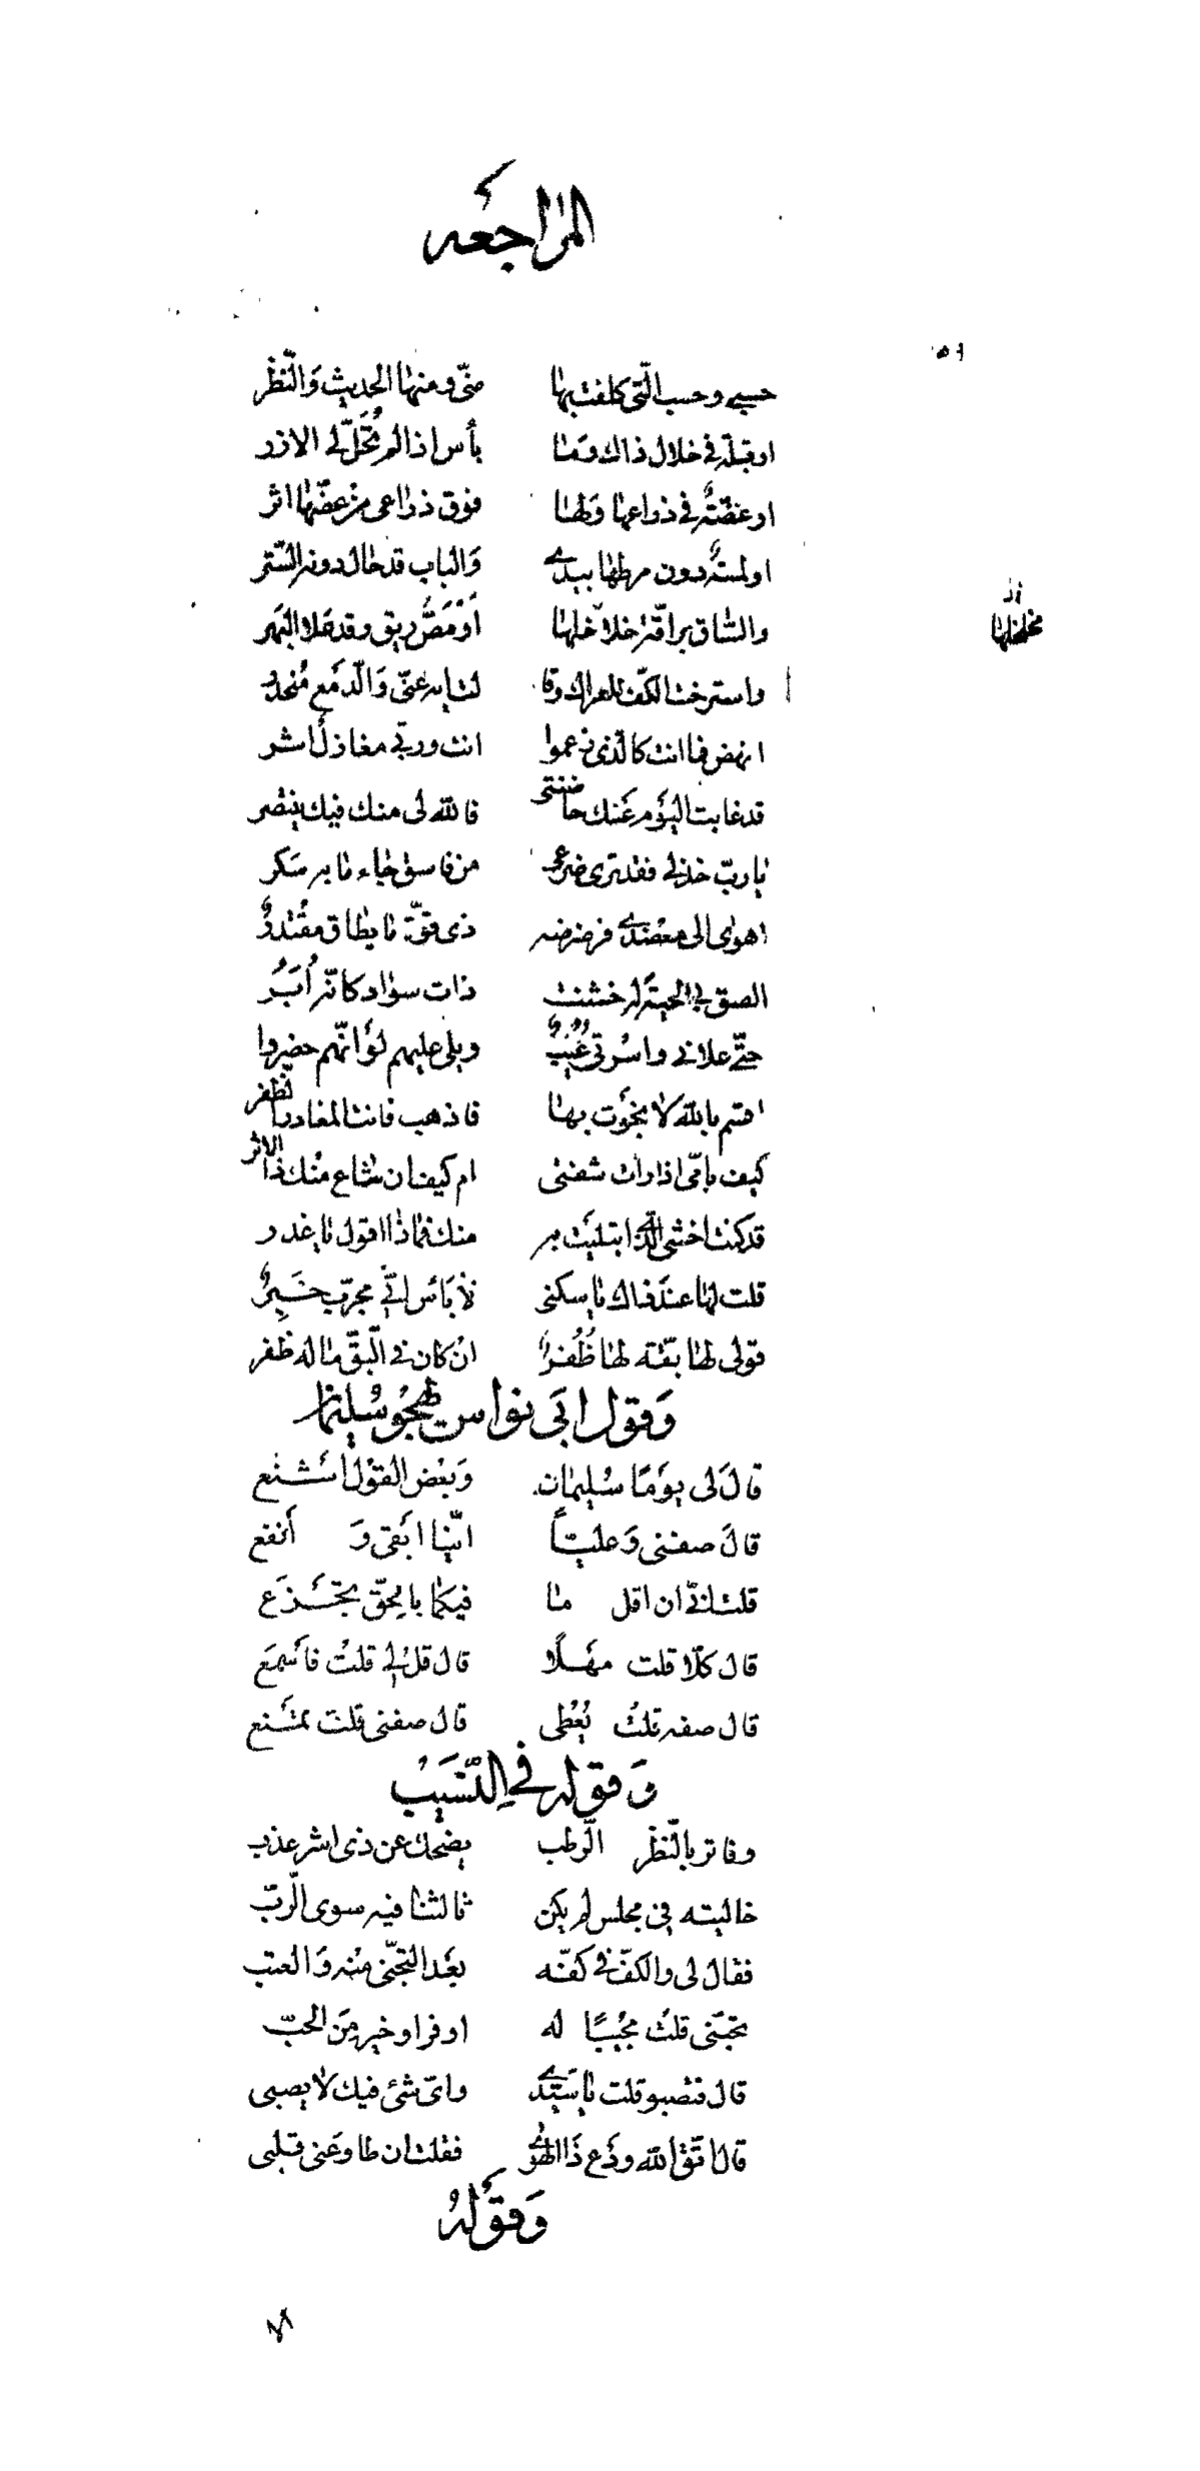 المراجعه
حسبى وحسب التى كلفت بها منّى ومنها الحديث وَالنّظر
او قبلة فى خلال ذاك وَما بأس اذا لم تُحَلّ لى الازر
او عضّةٌ فى ذراعها وَلها فوق ذراعى من عضّها اثر
او لمسةٌ دون مرطها بيدى وَالباب قد حال دونه السّتر
والسّاق برّاقة خلاخلها أوْ مَصُّ ريق وقد علا البهر
مخلخلها
واسترخت الكفّ للعراك وقا لت ايه عنّى وَالدّمع مُنحدر
انهض فما انت كالّذى زعموا انت وربّى مغازل أشر
قد غابت اليَوم عَنك حاضنتى فالله لى منك فيك ينتصر
يا ربّ خذ لى فقد ترى ضرعى من فاسق جاء ما به سَكر
اهوى الى معضدى فرضرضه ذى قوّة ما يطاق مقتدرٌ
الصق بى لحيةً له خشنت ذات سواد كانّه أُبَرُ
حتّى علانى واسْرتى غُيُبٌ ويلى عليهم لوَ انّهم حضروا
اقسم بالله لا نجَوت بها فاذهب فانت المغادر الظفر
كيف بامّى اذا رات شفتى ام كيف ان شاع منْك ذا الاثر
قد كنت اخشى الّذى ابتليت به منك فماذا اقول يا غدر
قلت لها عند ذاك يا سكنى لا بَاس انّى مجرّب خَبِرٌ
قولى لها بقّة لها ظُفُرٌ انْ كان فى البّقّ ما له ظفر
وَقول ابى نواس يهجُو سُليمان
قالَ لى يوَمًا سُليمان وَبعْض القوْل اَشنع
قالَ صفنى وَعليّاً ايّنا ابَقى وَ أنفع
قلت انّى ان اقل ما فيكما بالحِقّ تجَزع
قال كلّا قلت مهَلًا قال قل لى قلتُ فاَسْمَع
قال صفه قلتُ يُعْطى قال صفنى قلت تمنَع
وَقوله فى النّسَيبُ
وفاتر بالّنظر الّرطب يضحك عن ذى اشر عذب
خاليته فى مجلس لم يكن ثالثنا فيه سوى الّربّ
فقال لى والكفّ فى كفّه بعَد التجنّى منْه وَالعتب
تحبّنى قلتُ مجُيبًا له اوفر اوخير مِنَ الحبّ
قال فتصبو قلت يا سيّدى واىّ شئ فيك لا يصبى
قال اتّق الله ودَع ذَا الهَوى فقلت ان طاوعَنى قلبى
وَقولهُ